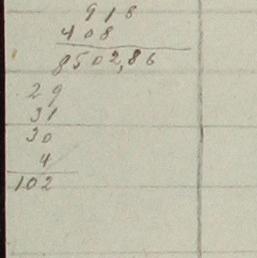 918
408
8502,86
29
31
30
4
102